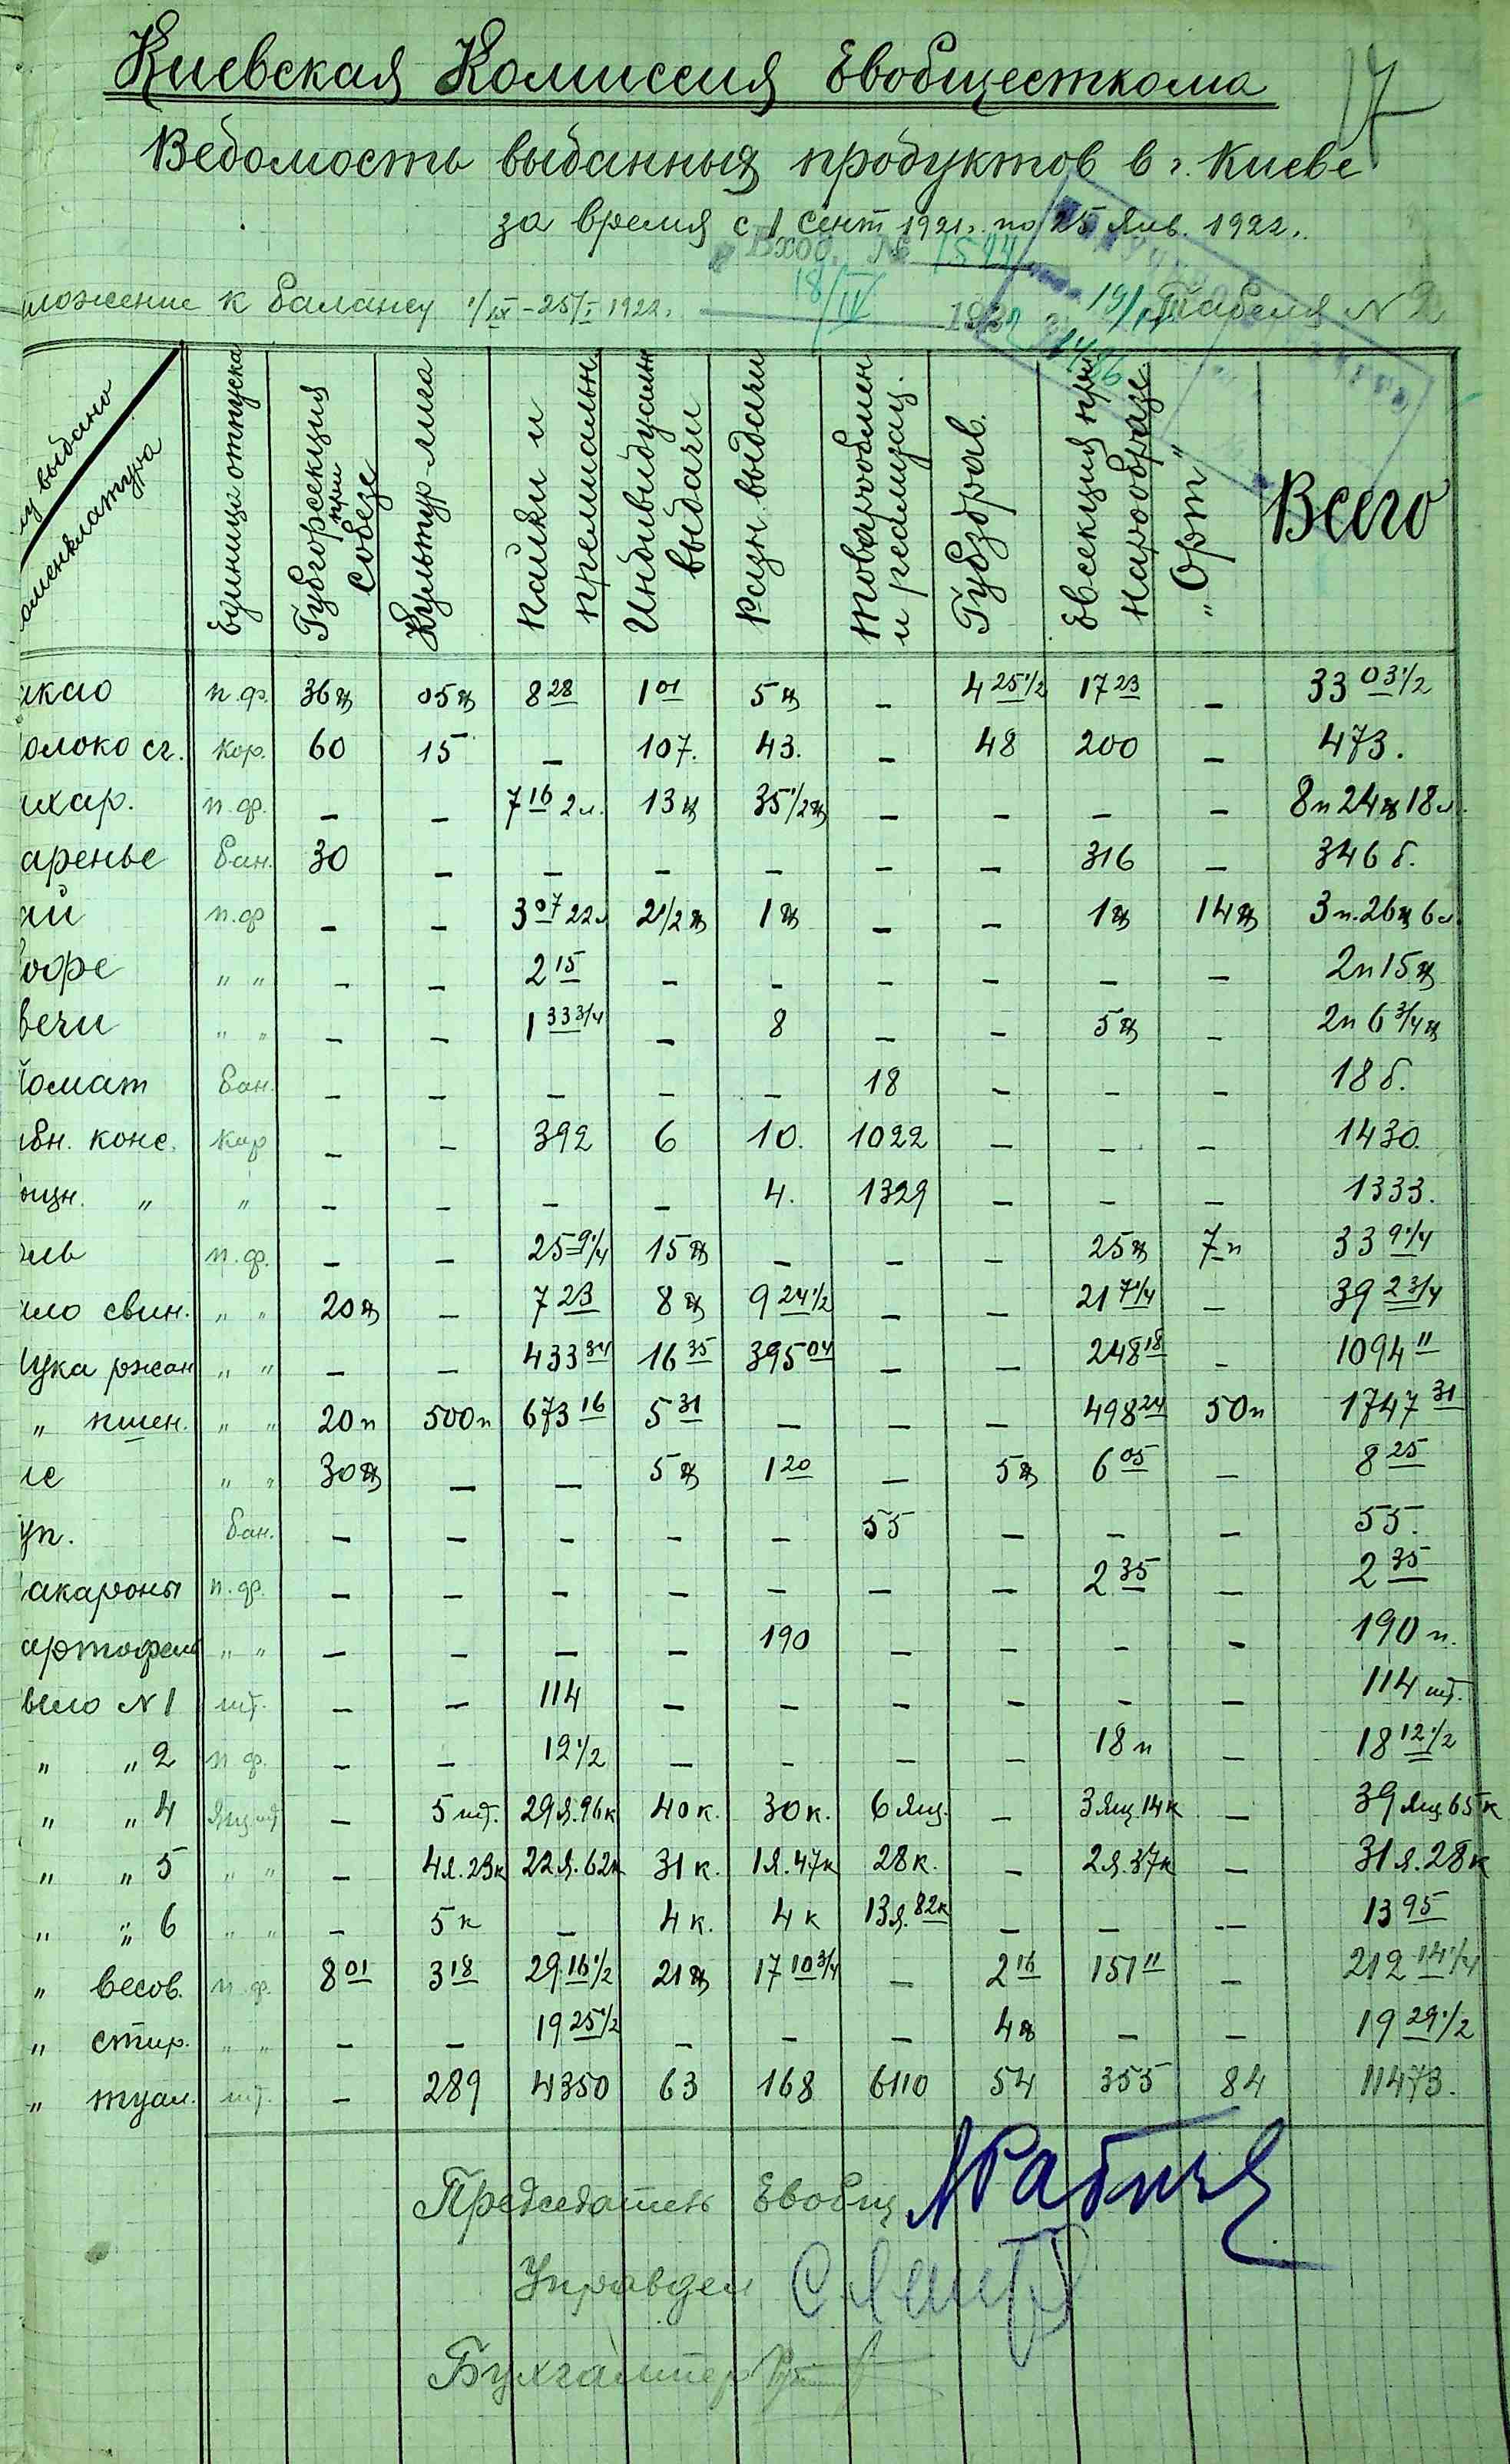 17
Киевская Комиссия Евобщесткома
Ведомость выданныя продуктов в г. Киеве
за время с 1 Сент 1921 г. по 25 Янв. 1922 г.
Вход. № 1544
18/IV 1922
19/IV
1486
иложение к балансу 1/IX – 25/I 1922. Табель N 2
му выдано
оменклатура
Единица отпуска
Губгорсекция при Собезе
Культур-лига
Пайки и премиальн
Индивидуальн выдачи
Разн. выдачи
Товарообмен и реализац.
Губздрав.
Евсекция при Наробразе
„Орт"
Всего
акао п.ф. 36ф 05ф 8 28 1 01 5ф – 4 25 1/2 17 23 – 33 03 1/2
олоко сг. кор. 60 15 – 107. 43. – 48 200 – 473.
ахар. п.ф. – – 7 16 2л. 13ф 35 1/2ф – – – – 8п 24ф 18л.
аренье бан. 30 – – – – – – 316 – 346 б.
ай п.ф – – 3 07 22л 2 1/2ф 1ф – – 1ф 14ф 3п. 26ф 6л.
офе „ „ – – 2 15 – – – – – – 2п 15ф
вечи „ „ – – 1 33 3/4 – 8 – – 5ф – 2п 6 3/4ф
омат бан. – – – – – 18 – – – 18 б.
вн. конс. кор – – 392 6 10. 1022 – – – 1430.
ощн. „ „ – – – – 4. 1329 – – – 1333.
ль п.ф. – – 25 9 1/4 15ф – – – 25ф 7п 33 9 1/4
ало свин. „ „ 20ф – 7 23 8ф 9 24 1/2 – – 21 7 1/4 – 39 2 3/4
ука ржан „ „ – – 433 34 16 35 395 04 – – 248 18 – 1094 11
„ пшен. „ „ 20п 500п 673 16 5 31 – – – 498 24 50п 1747 31
ис „ „ 30ф – – 5ф 1 20 – 5ф 6 05 – 8 25
уп. бан. – – – – – 55 – – – 55.
акароны п.ф. – – – – – – – 2 35 – 2 35
артофель „ „ – – – – 190 – – – – 190 п.
ыло N 1 шт. – – 114 – – – – – – 114 шт.
„ „ 2 п.ф. – – 12 1/2 – – – – 18 п – 18 12 1/2
„ „ 4 Ящ шт – 5 шт. 29 Я. 96к 40 к. 30 к. 6 Ящ. – 3 Ящ. 14к – 39 Ящ 65к
„ „ 5 „ „ – 4Я. 23к 22 Я. 62к 31 к. 1Я. 47к 28 к. – 2Я. 37к – 31 Я. 28к
„ „ 6 „ „ – 5 к – 4 к. 4 к 13 Я. 82к – – – 13 95
„ весов. п.ф. 8 01 3 18 29 16 1/2 21ф 17 10 3/4 – 2 16 151 11 – 212 14 1/4
„ стир. „ „ – – 19 25 1/2 – – – 4ф – – 19 29 1/2
„ туал. шт. – 289 4350 63 168 6110 54 355 84 11473.
Председатель Евобщ
Управдел
Бухгалтер